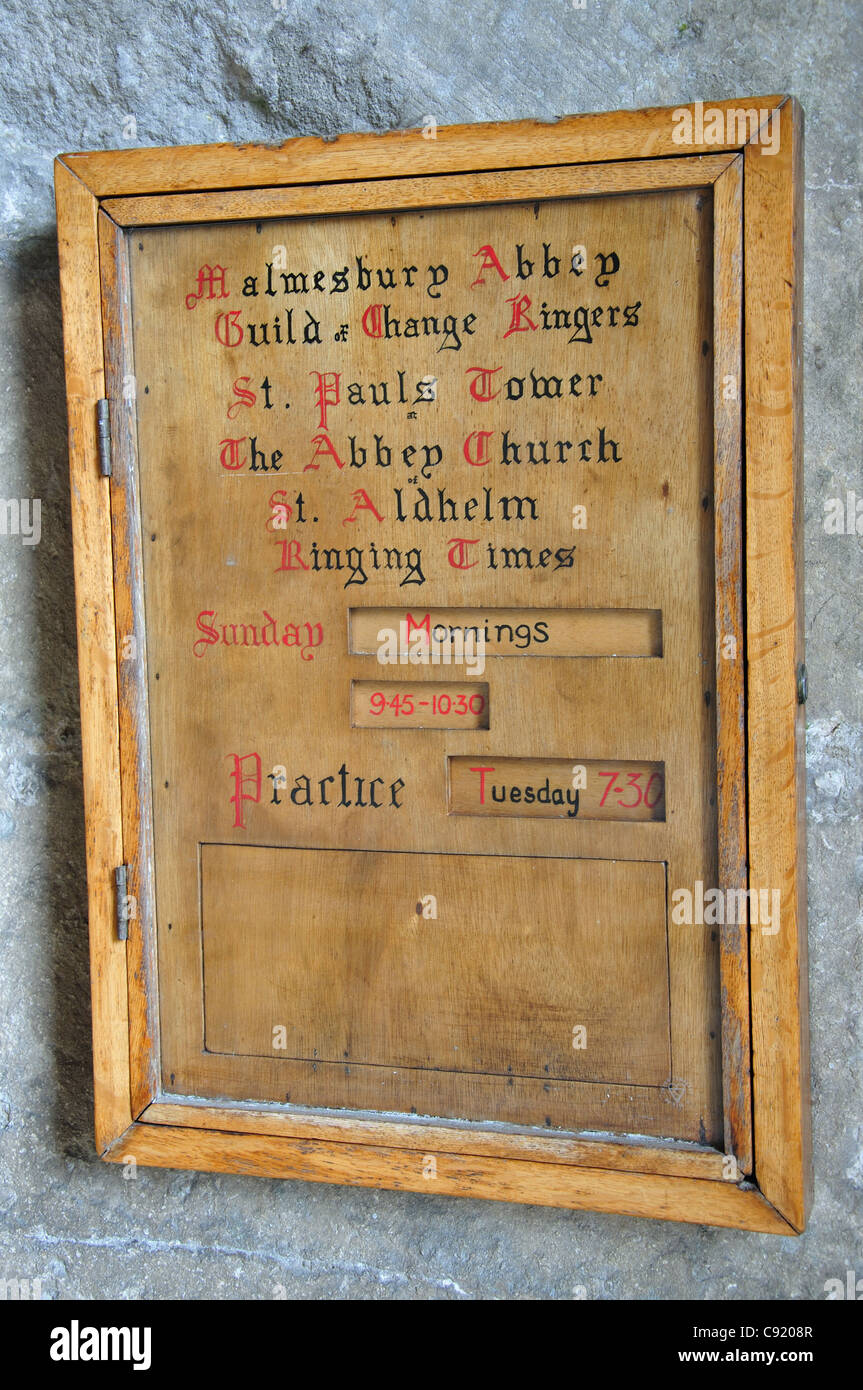 Malmesbury Abbey
Guild of Change Ringers
St. Pauls Tower
at
The Abbey Church
of
St. Aldhelm
Ringing Times
Sunday Mornings
9·45-10·30
Practice Tuesday 7-30
alamy
Image ID: C9208R
www.alamy.com